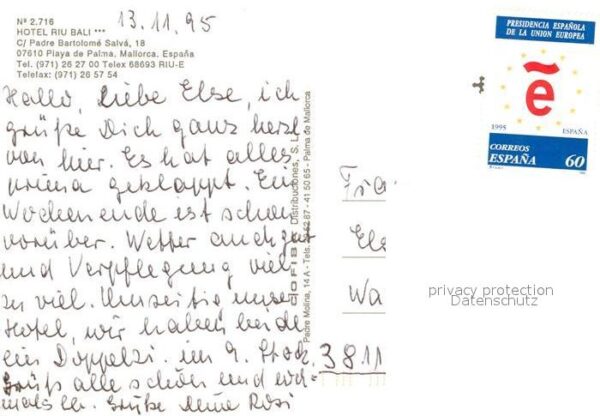 Nº 2.716
HOTEL RIU BALI ***
C/ Padre Bartolomé Salvá, 18
07610 Playa de Palma, Mallorca, España
Tel. (971) 26 27 00 Telex 68693 RIU-E
Telefax: (971) 26 57 54
13.11.95
Hallo, Liebe Else, ich
grüße Dich ganz herzl
von hier. Es hat alles
prima geklappt. Ein
Wochenende ist schon
vorüber. Wetter auch gut
und Verpflegung viel
zu viel. Umseitig unser
Hotel, wir haben beide
ein Doppelzi. im 9. Stock.
Grüß alle schön und noch-
mals lb. Grüße Deine Rosi
Distribuciones, S.L.
Padre Molina, 14 A - Tels. 52 87 - 41 50 65 - Palma de Mallorca
PRESIDENCIA ESPAÑOLA
DE LA UNION EUROPEA
ẽ
1995 ESPAÑA
CORREOS
ESPAÑA 60
Fra
Els
Wa
3811
privacy protection
Datenschutz